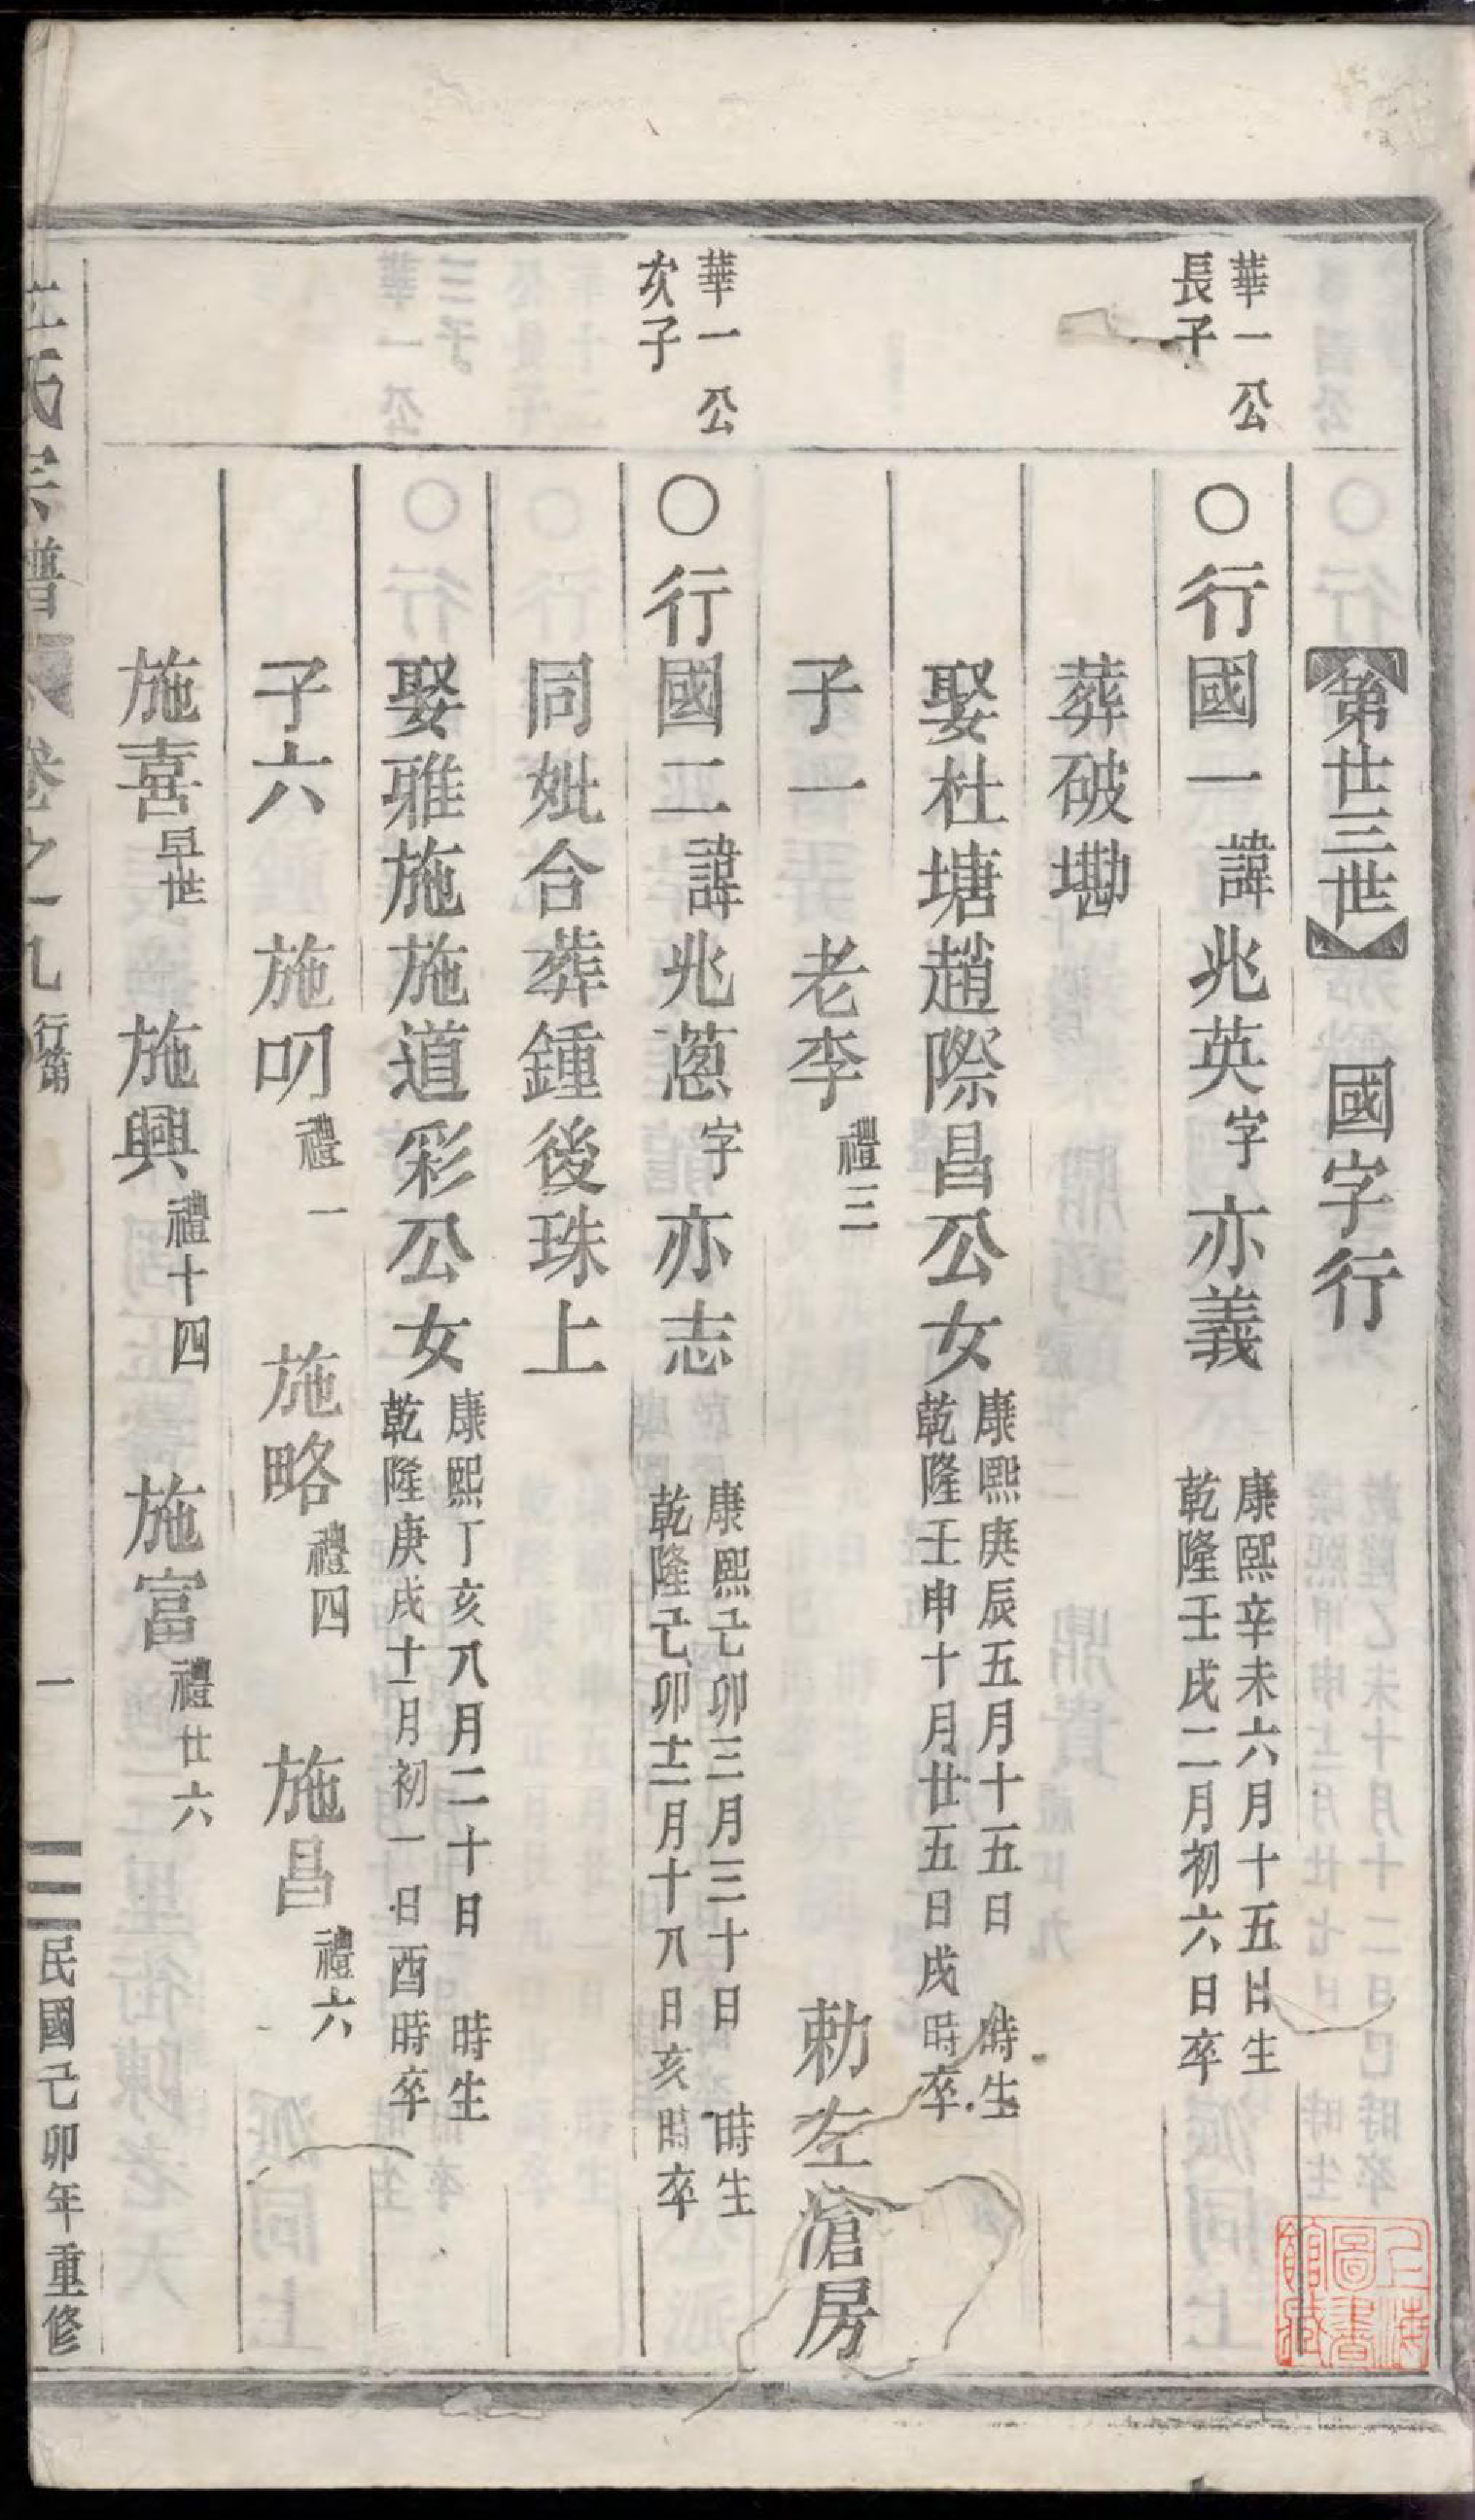 第世三世 國字行
華一公
長子
○行國一諱兆英字亦義
康熙辛未六月十五日生
乾隆壬戌二月初六日卒
葬破墈
娶杜塘趙際昌公女
康熙庚辰五月十五日 時生
乾隆壬申十月廿五日戌時卒
子一 老李禮三 勅左滄房
華一公
次子
○行國二諱兆蔥字亦志
康熙己卯三月三十日 時生
乾隆己卯十二月十八日亥時卒
同妣合葬鍾後珠上
娶雅施施道彩公女
康熙丁亥八月二十日 時生
乾隆庚戌十一月初一日酉時卒
子六 施叨禮一 施略禮四 施昌禮六
施喜早世 施興禮十四 施富禮廿六
氏宗譜 卷之一九 行第 一 民國己卯年重修
上海
圖書
館藏